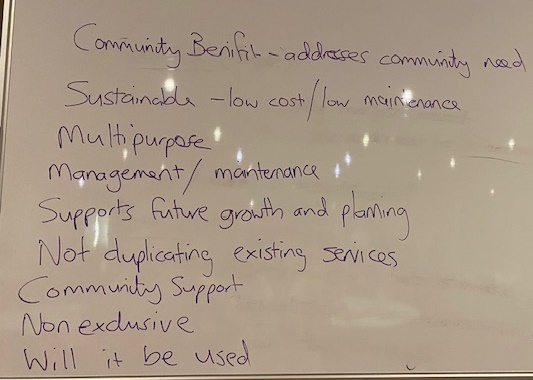 Community Benifit - addresses community need
Sustainable - low cost/low maintenance
Multipurpose
Management/ maintenance
Supports future growth and planning
Not duplicating existing services
Community Support
Non exclusive
Will it be used